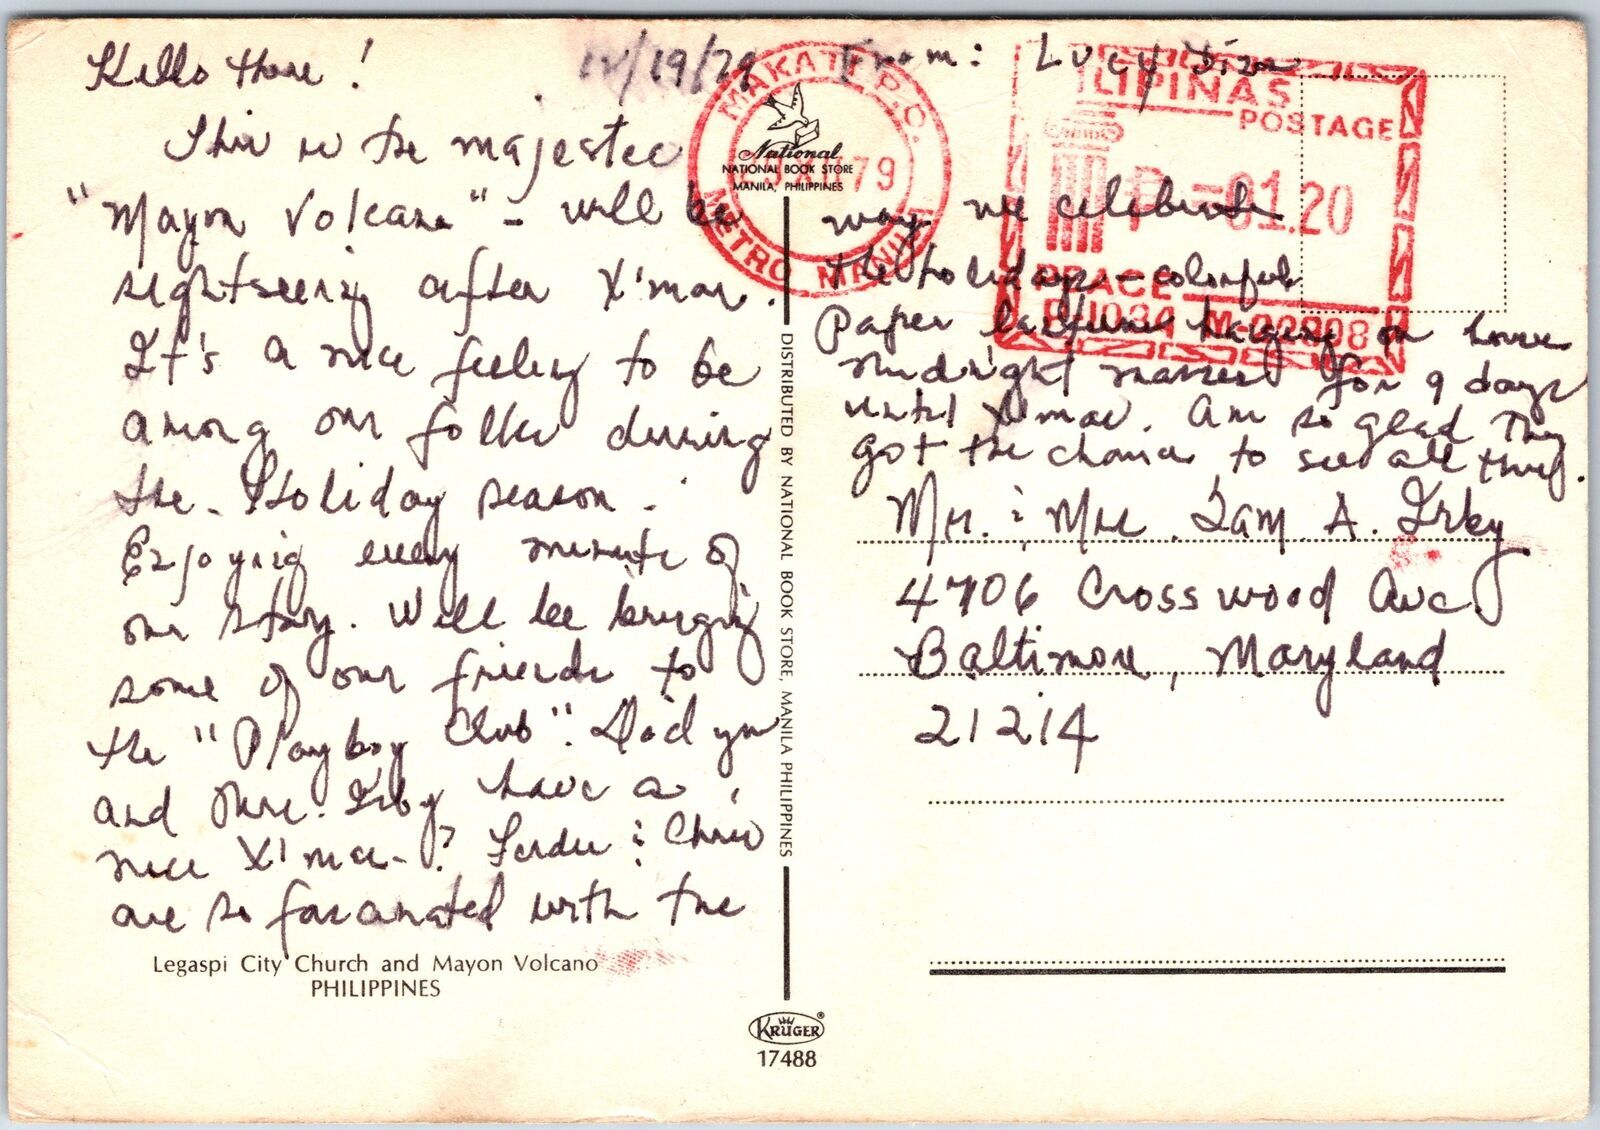 Hello there!
12/19/79
From: Lucy
This is the majestic
"Mayon Volcano" - will be
sightseeing after X'mas.
It's a nice feeling to be
among our folks during
the Holiday season.
Enjoying every minute of
our stay. Will be bringing
some of our friends to
the "Playboy Club". Did you
and Mrs. Irby have a
nice X'mas-? Ferdie & Chris
are so fascinated with the
way we celebrate
the holidays - colorful
Paper lanterns hanging on house
midnight masses for 9 days
until X'mas. Am so glad they
got the chance to see all this.
Mr. & Mrs. Sam A. Irby
4706 Crosswood Ave.
Baltimore, Maryland
21214
MAKATI P.O.
XII 79
METRO MANILA
National
NATIONAL BOOK STORE
MANILA, PHILIPPINES
PILIPINAS
POSTAGE
P-01.20
DISTRIBUTED BY NATIONAL BOOK STORE, MANILA PHILIPPINES
Legaspi City Church and Mayon Volcano
PHILIPPINES
KRÜGER®
17488